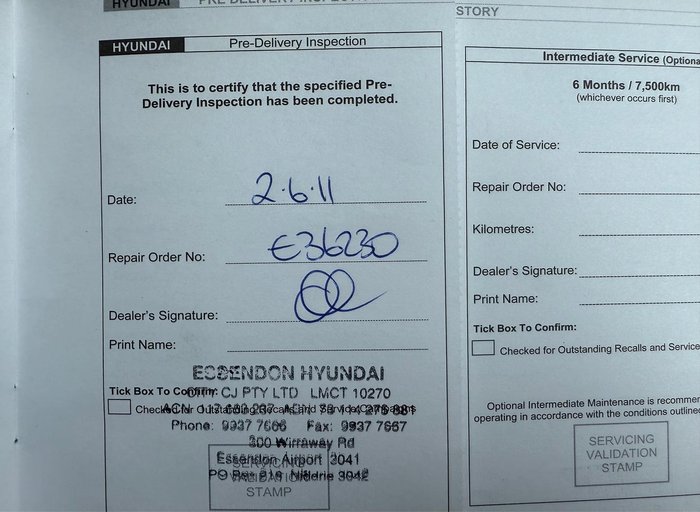 HYUNDAI
STORY
HYUNDAI Pre-Delivery Inspection
This is to certify that the specified Pre-
Delivery Inspection has been completed.
Date: 2.6.11
Repair Order No: E36230
Dealer's Signature:
Print Name:
ESSENDON HYUNDAI
Tick Box To Confirm: CJ PTY LTD LMCT 10270
Checked for Outstanding Recalls and Service Campaigns
ACN
Phone: 9937 7666 Fax: 9937 7657
300 Wirraway Rd
Essendon Airport 3041
PO Box Niddrie 3042
SERVICING
VALIDATION
STAMP
Intermediate Service (Optiona
6 Months / 7,500km
(whichever occurs first)
Date of Service:
Repair Order No:
Kilometres:
Dealer's Signature:
Print Name:
Tick Box To Confirm:
Checked for Outstanding Recalls and Service
Optional Intermediate Maintenance is recommen
operating in accordance with the conditions outline
SERVICING
VALIDATION
STAMP